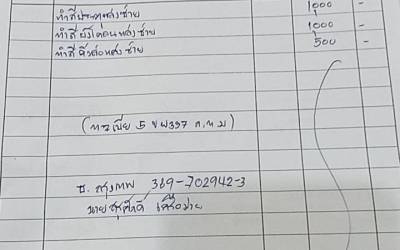 ทำสีประตูหลังซ้าย 1000 -
ทำสีบังโคลนหลังซ้าย 1000 -
ทำสี หลังซ้าย 500 -
(ทะเบียน 5 ขพ 397 ก.ท.ม)
ธ. กรุงเทพ 369-702942-3
นาย